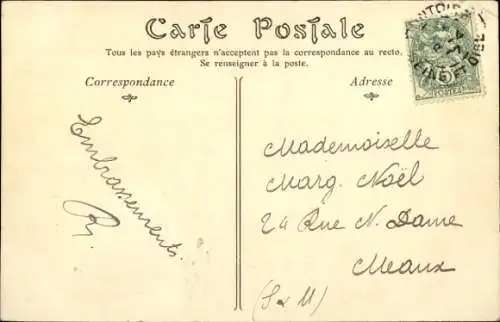 Carte Postale
Tous les pays étrangers n'acceptent pas la correspondance au recto.
Se renseigner à la poste.
Correspondance
Adresse
Embrassements
Mademoiselle
Marg. Noël
24 Rue N. Dame
Meaux
(S & M)
POSTES